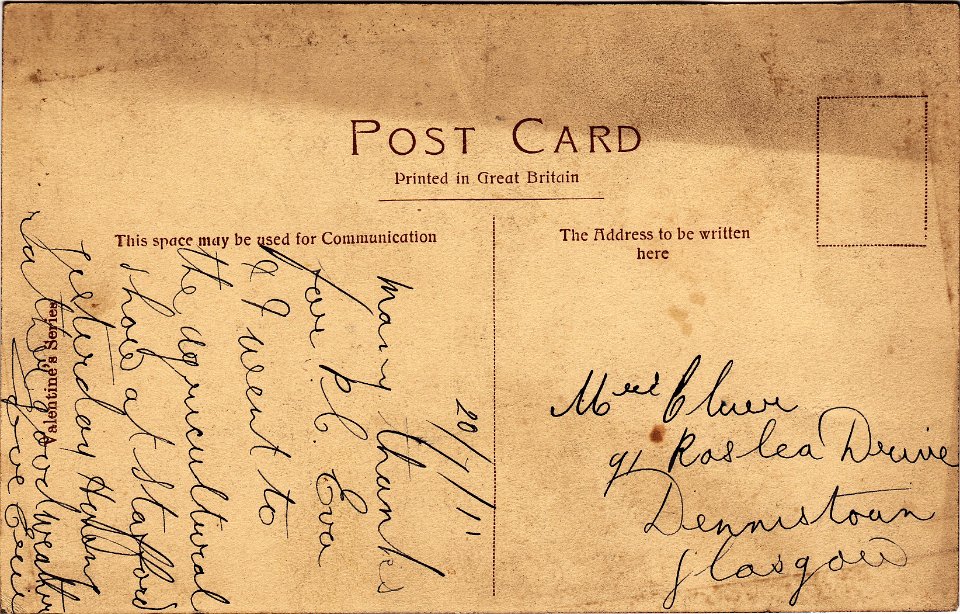 POST CARD
Printed in Great Britain
This space may be used for Communication
The Address to be written
here
Valentine's Series
20/7/11
many thanks
for P.C. Eva
& I went to
the agricultural
show at Stafford
yesterday
rather good weather
love
Mrs
91 Roslea Drive
Dennistoun
Glasgow